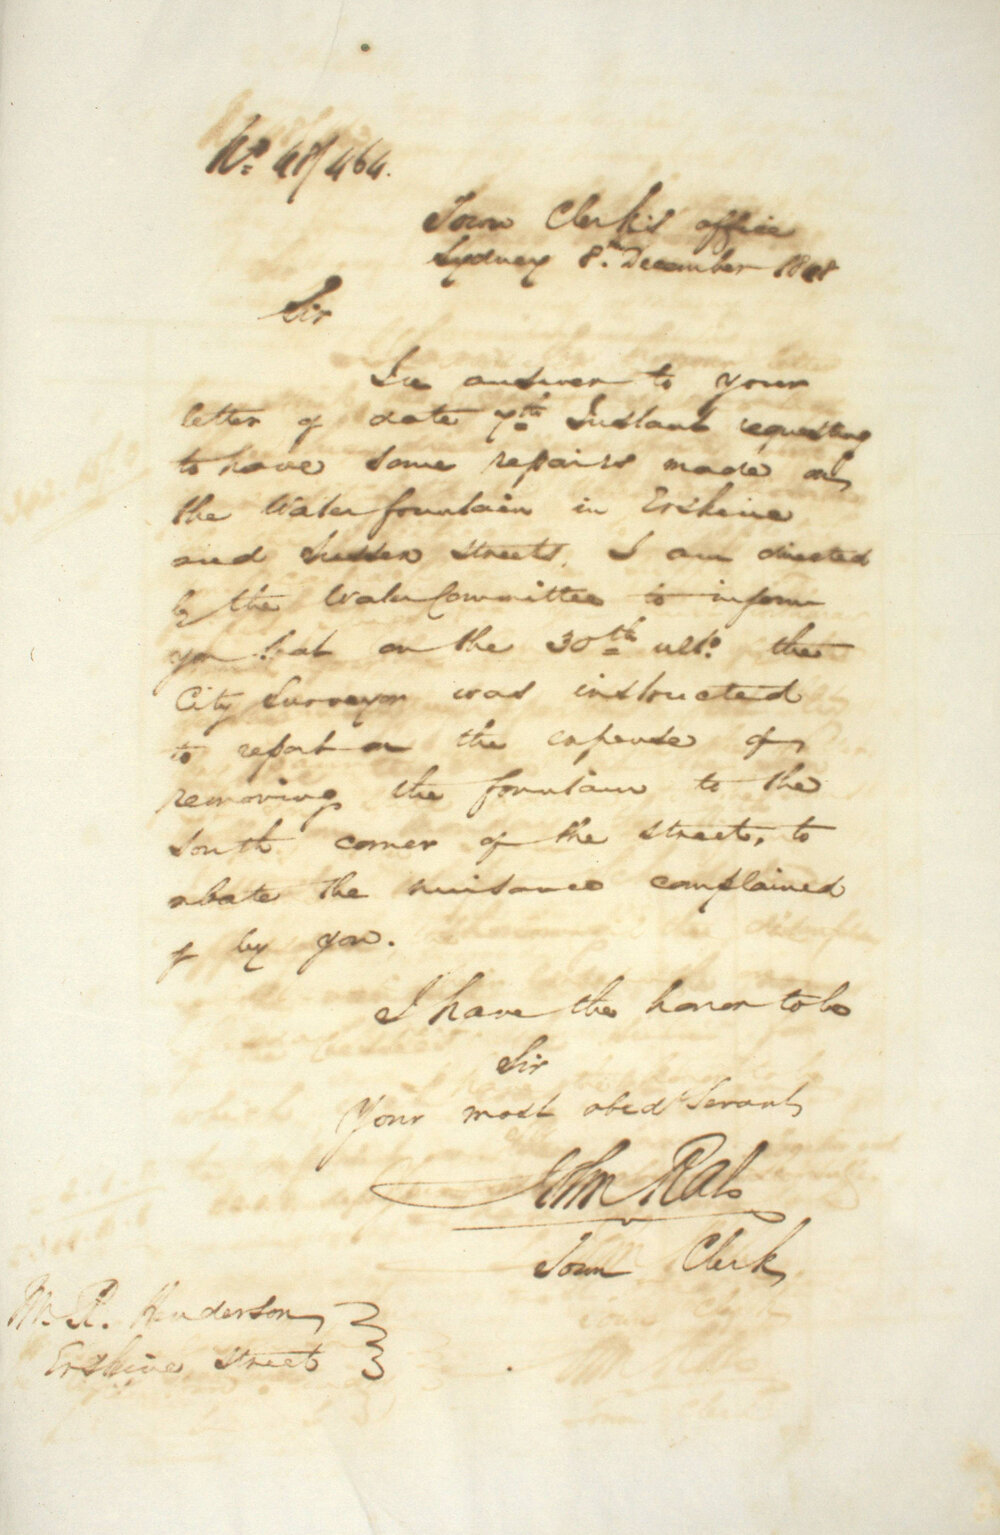 No. 48/464.
Town Clerk's office
Sydney 8th December 1848
Sir
In answer to your
letter of date 7th Instant requesting
to have some repairs made on
the Water fountain in Erskine
and Sussex Streets, I am directed
by the Water Committee to inform
you that on the 30th ulto. the
City Surveyor was instructed
to report on the expense of
removing the fountain to the
South corner of the street, to
abate the nuisance complained
of by you.
I have the honor to be
Sir
Your most obedt Servant
John Rae
Town Clerk
Mr. R. Henderson
Erskine Street